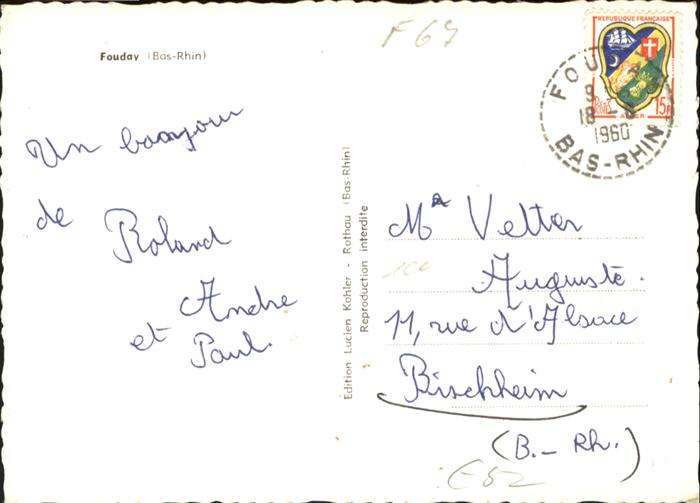 F67
Fouday (Bas-Rhin)
Un bonjour
de Roland
Andre
et Paul.
Edition Lucien Kohler - Rothau (Bas-Rhin)
Reproduction interdite
REPUBLIQUE FRANÇAISE
15F
ALGER
FOUDAY
18 - 8
1960
BAS-RHIN
Mr Vetter
Auguste.
11, rue d'Alsace
Bischheim
(B.- Rh.)